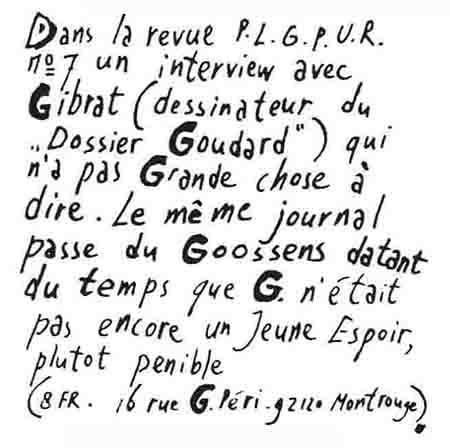 Dans la revue P.L.G.P.U.R.
nº 7 un interview avec
Gibrat (dessinateur du
„Dossier Goudard") qui
n'a pas Grande chose à
dire. Le même journal
passe du Goossens datant
du temps que G. n'était
pas encore un Jeune Espoir,
plutot penible
(8 FR. 16 rue G. Péri - 92120 Montrouge).